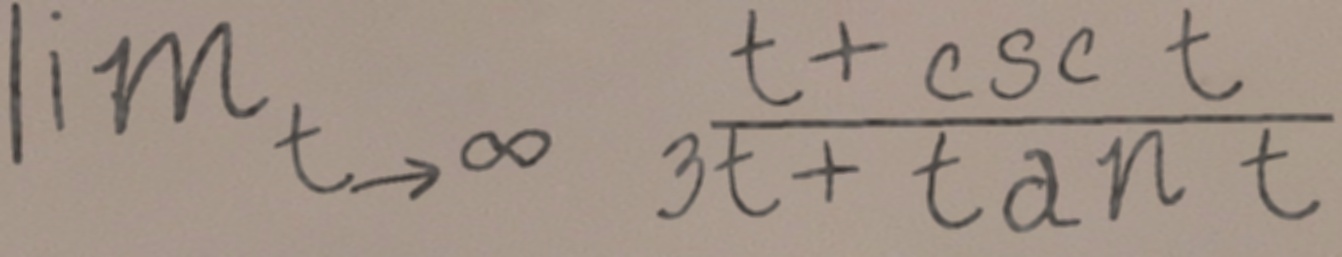 lim t→∞ (t + csc t)/(3t + tan t)